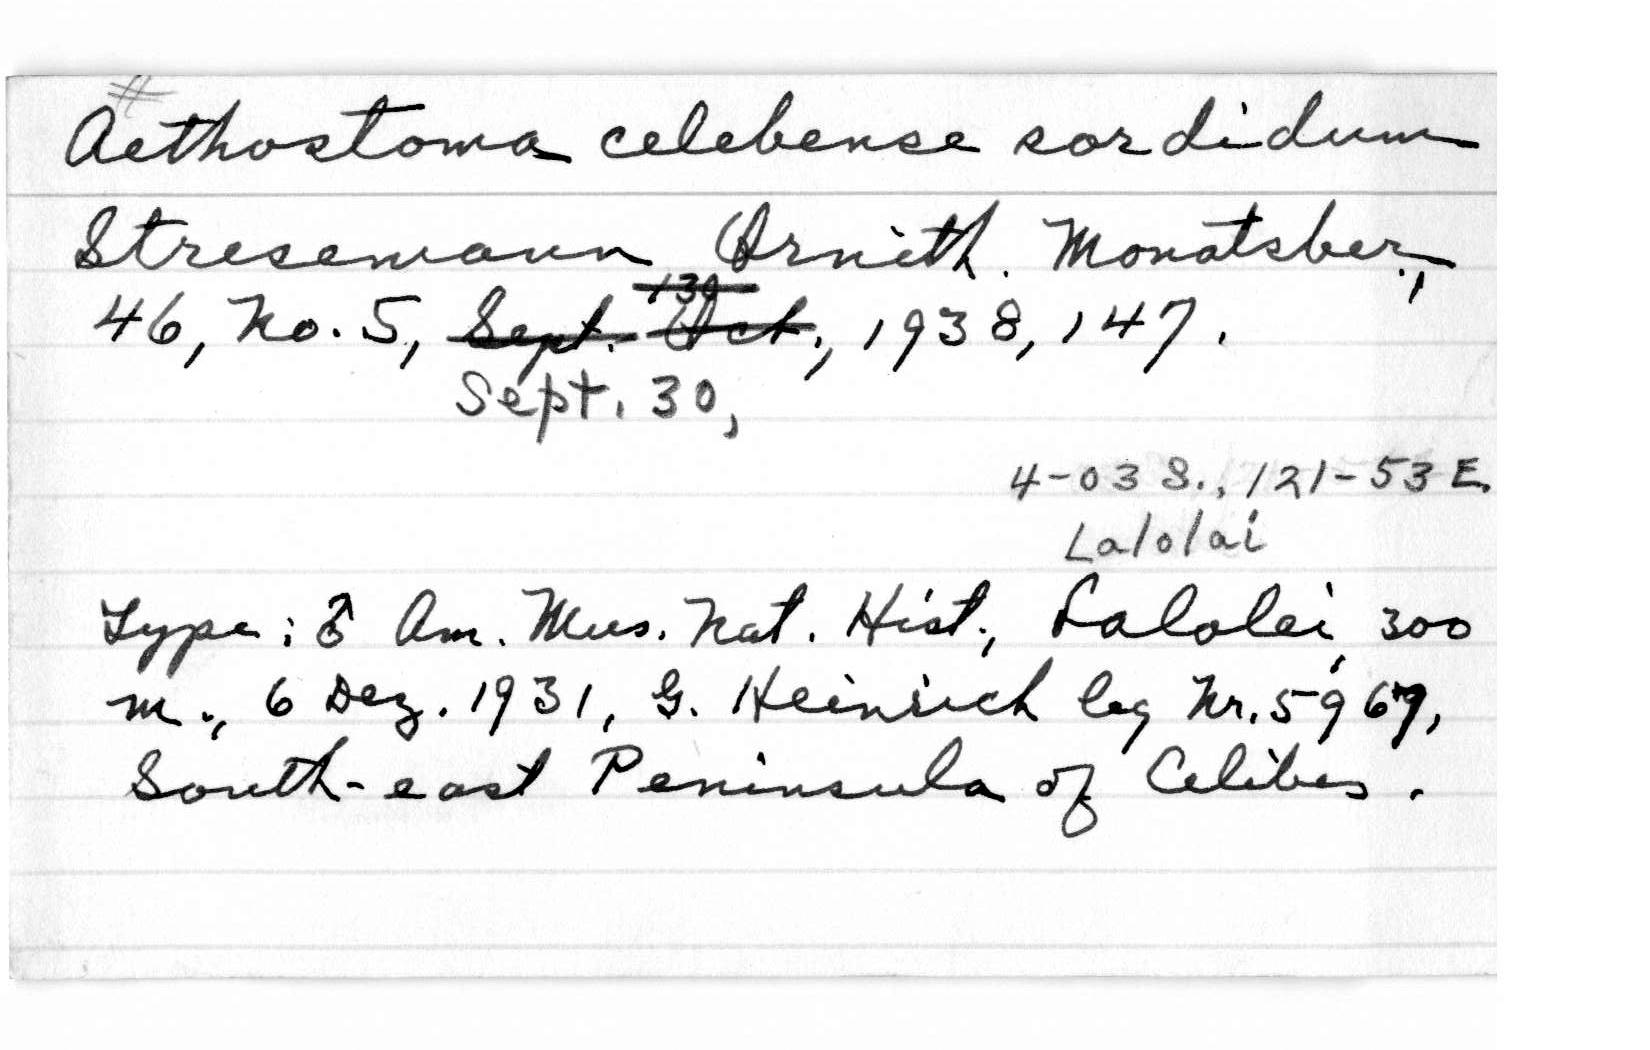 #
Aethostoma celebense sordidum
Stresemann Ornith. Monatsber.,
46, No. 5, Sept. Oct., 1938, 147.
Sept. 30,
4-03 S., 121-53 E.
Lalolai
Type: ♂ Am. Mus. Nat. Hist., Lalolei, 300
m., 6 Dez. 1931, G. Heinrich leg Nr. 5967,
South-east Peninsula of Celibes.